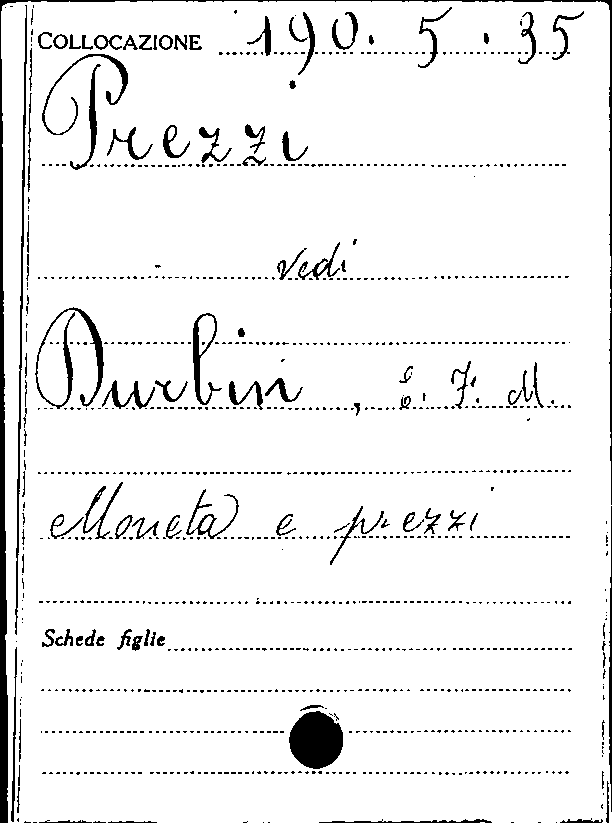 COLLOCAZIONE 190. 5. 35
Prezzi
vedi
Durbin, E. F. M.
Moneta e prezzi
Schede figlie